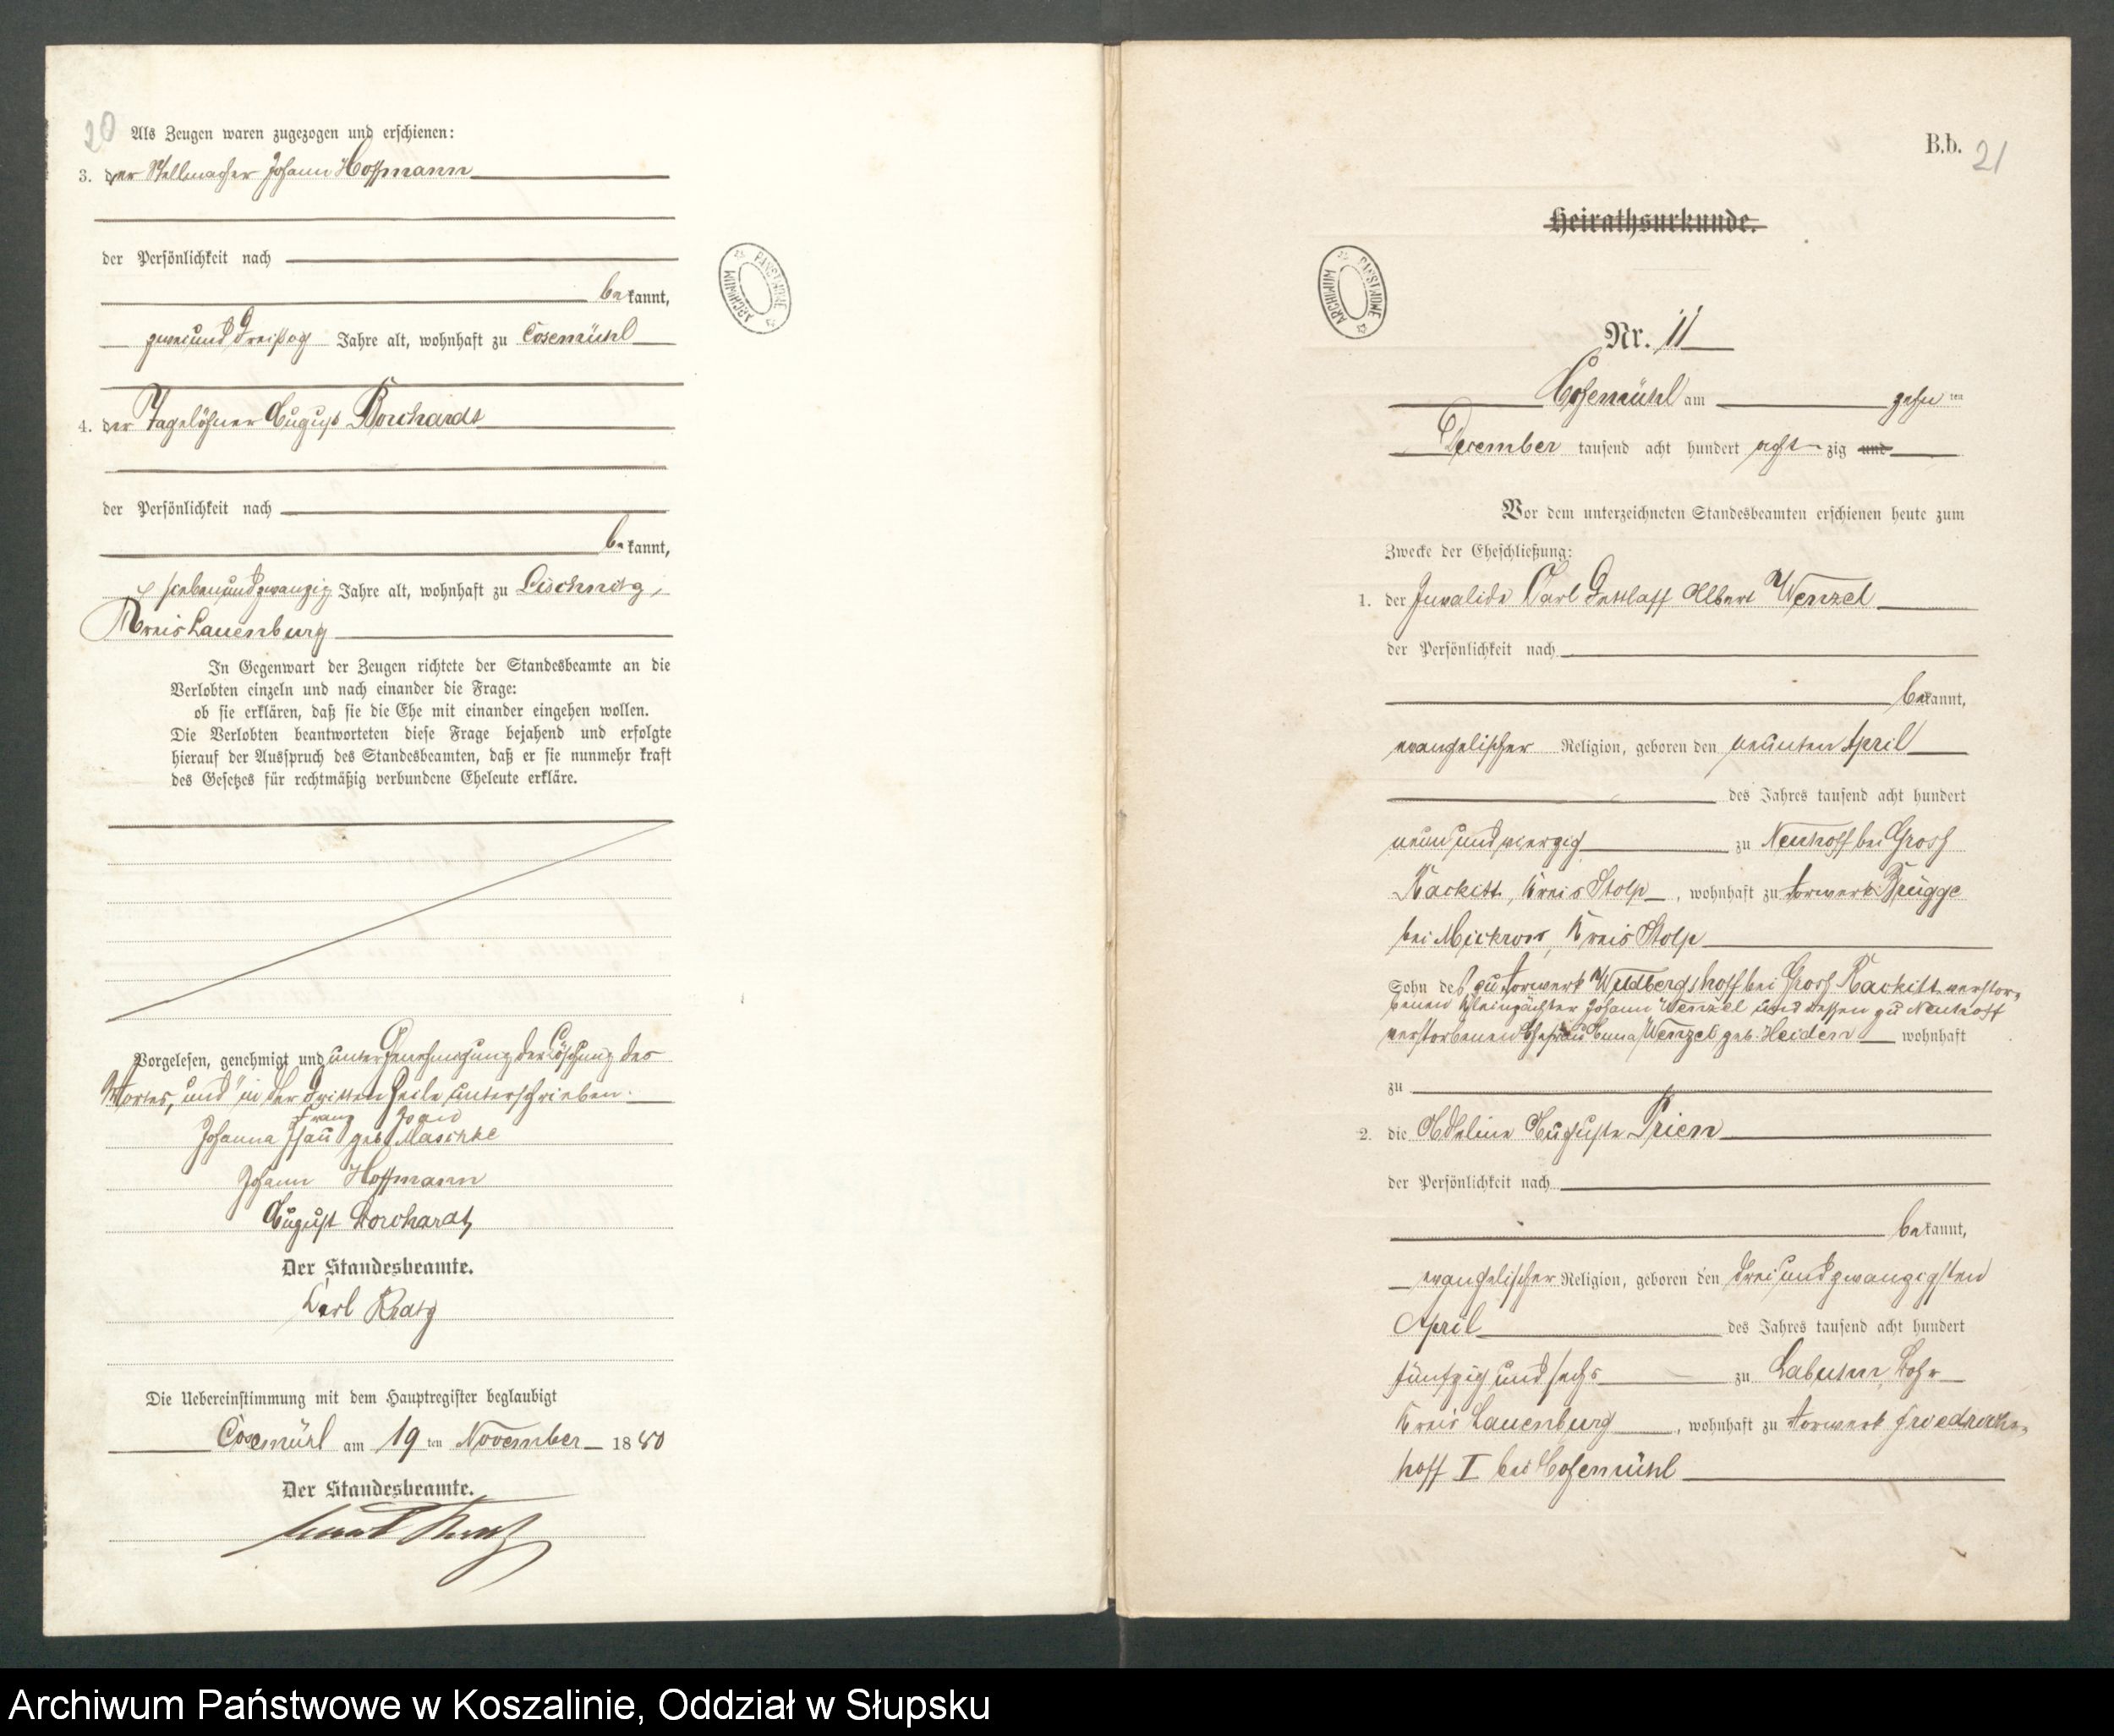 20
Als Zeugen waren zugezogen und erschienen:
3. der Stellmacher Johann Hoffmann
der Persönlichkeit nach
bekannt,
zweiunddreißig Jahre alt, wohnhaft zu Cosemühl
4. der Tagelöhner August Borchardt
der Persönlichkeit nach
bekannt,
siebenundzwanzig Jahre alt, wohnhaft zu Lischnitz,
Kreis Lauenburg
In Gegenwart der Zeugen richtete der Standesbeamte an die
Verlobten einzeln und nach einander die Frage:
ob sie erklären, daß sie die Ehe mit einander eingehen wollen.
Die Verlobten beantworteten diese Frage bejahend und erfolgte
hierauf der Ausspruch des Standesbeamten, daß er sie nunmehr kraft
des Gesetzes für rechtmäßig verbundene Eheleute erkläre.
Vorgelesen, genehmigt und unter Genehmigung der Löschung des
Wortes „und" in der dritten Zeile unterschrieben.
Franz
Johanna geb. Maschke
Johann Hoffmann
August Borchardt
Der Standesbeamte.
Carl Kratz
Die Uebereinstimmung mit dem Hauptregister beglaubigt
Cosemühl am 19 ten November 1880
Der Standesbeamte.
Kratz
ARCHIWUM PAŃSTWOWE
B.b. 21
Heirathsurkunde.
ARCHIWUM PAŃSTWOWE
Nr. 11
Cosemühl am zehn ten
December tausend acht hundert acht zig und
Vor dem unterzeichneten Standesbeamten erschienen heute zum
Zwecke der Eheschließung:
1. der Invalide Carl Dettlaff Albert Wenzel
der Persönlichkeit nach
bekannt,
evangelischer Religion, geboren den neunten April
des Jahres tausend acht hundert
neun und vierzig zu Neuhoff bei Gross
Rackitt, Kreis Stolp, wohnhaft zu Vorwerk Brügge
bei Mickrow, Kreis Stolp
Sohn des zu Vorwerk Wildbergshoff bei Gross Rackitt verstor-
benen Kleinpächter Johann Wenzel und dessen zu Neuhoff
verstorbenen Ehefrau Anna Wenzel geb. Heiden wohnhaft
zu
2. die Adeline Auguste Prien
der Persönlichkeit nach
bekannt,
evangelischer Religion, geboren den dreiundzwanzigsten
April des Jahres tausend acht hundert
fünfzig und sechs zu Labuhn,
Kreis Lauenburg, wohnhaft zu Vorwerk Friedrichs-
hoff I bei Cosemühl
Archiwum Państwowe w Koszalinie, Oddział w Słupsku